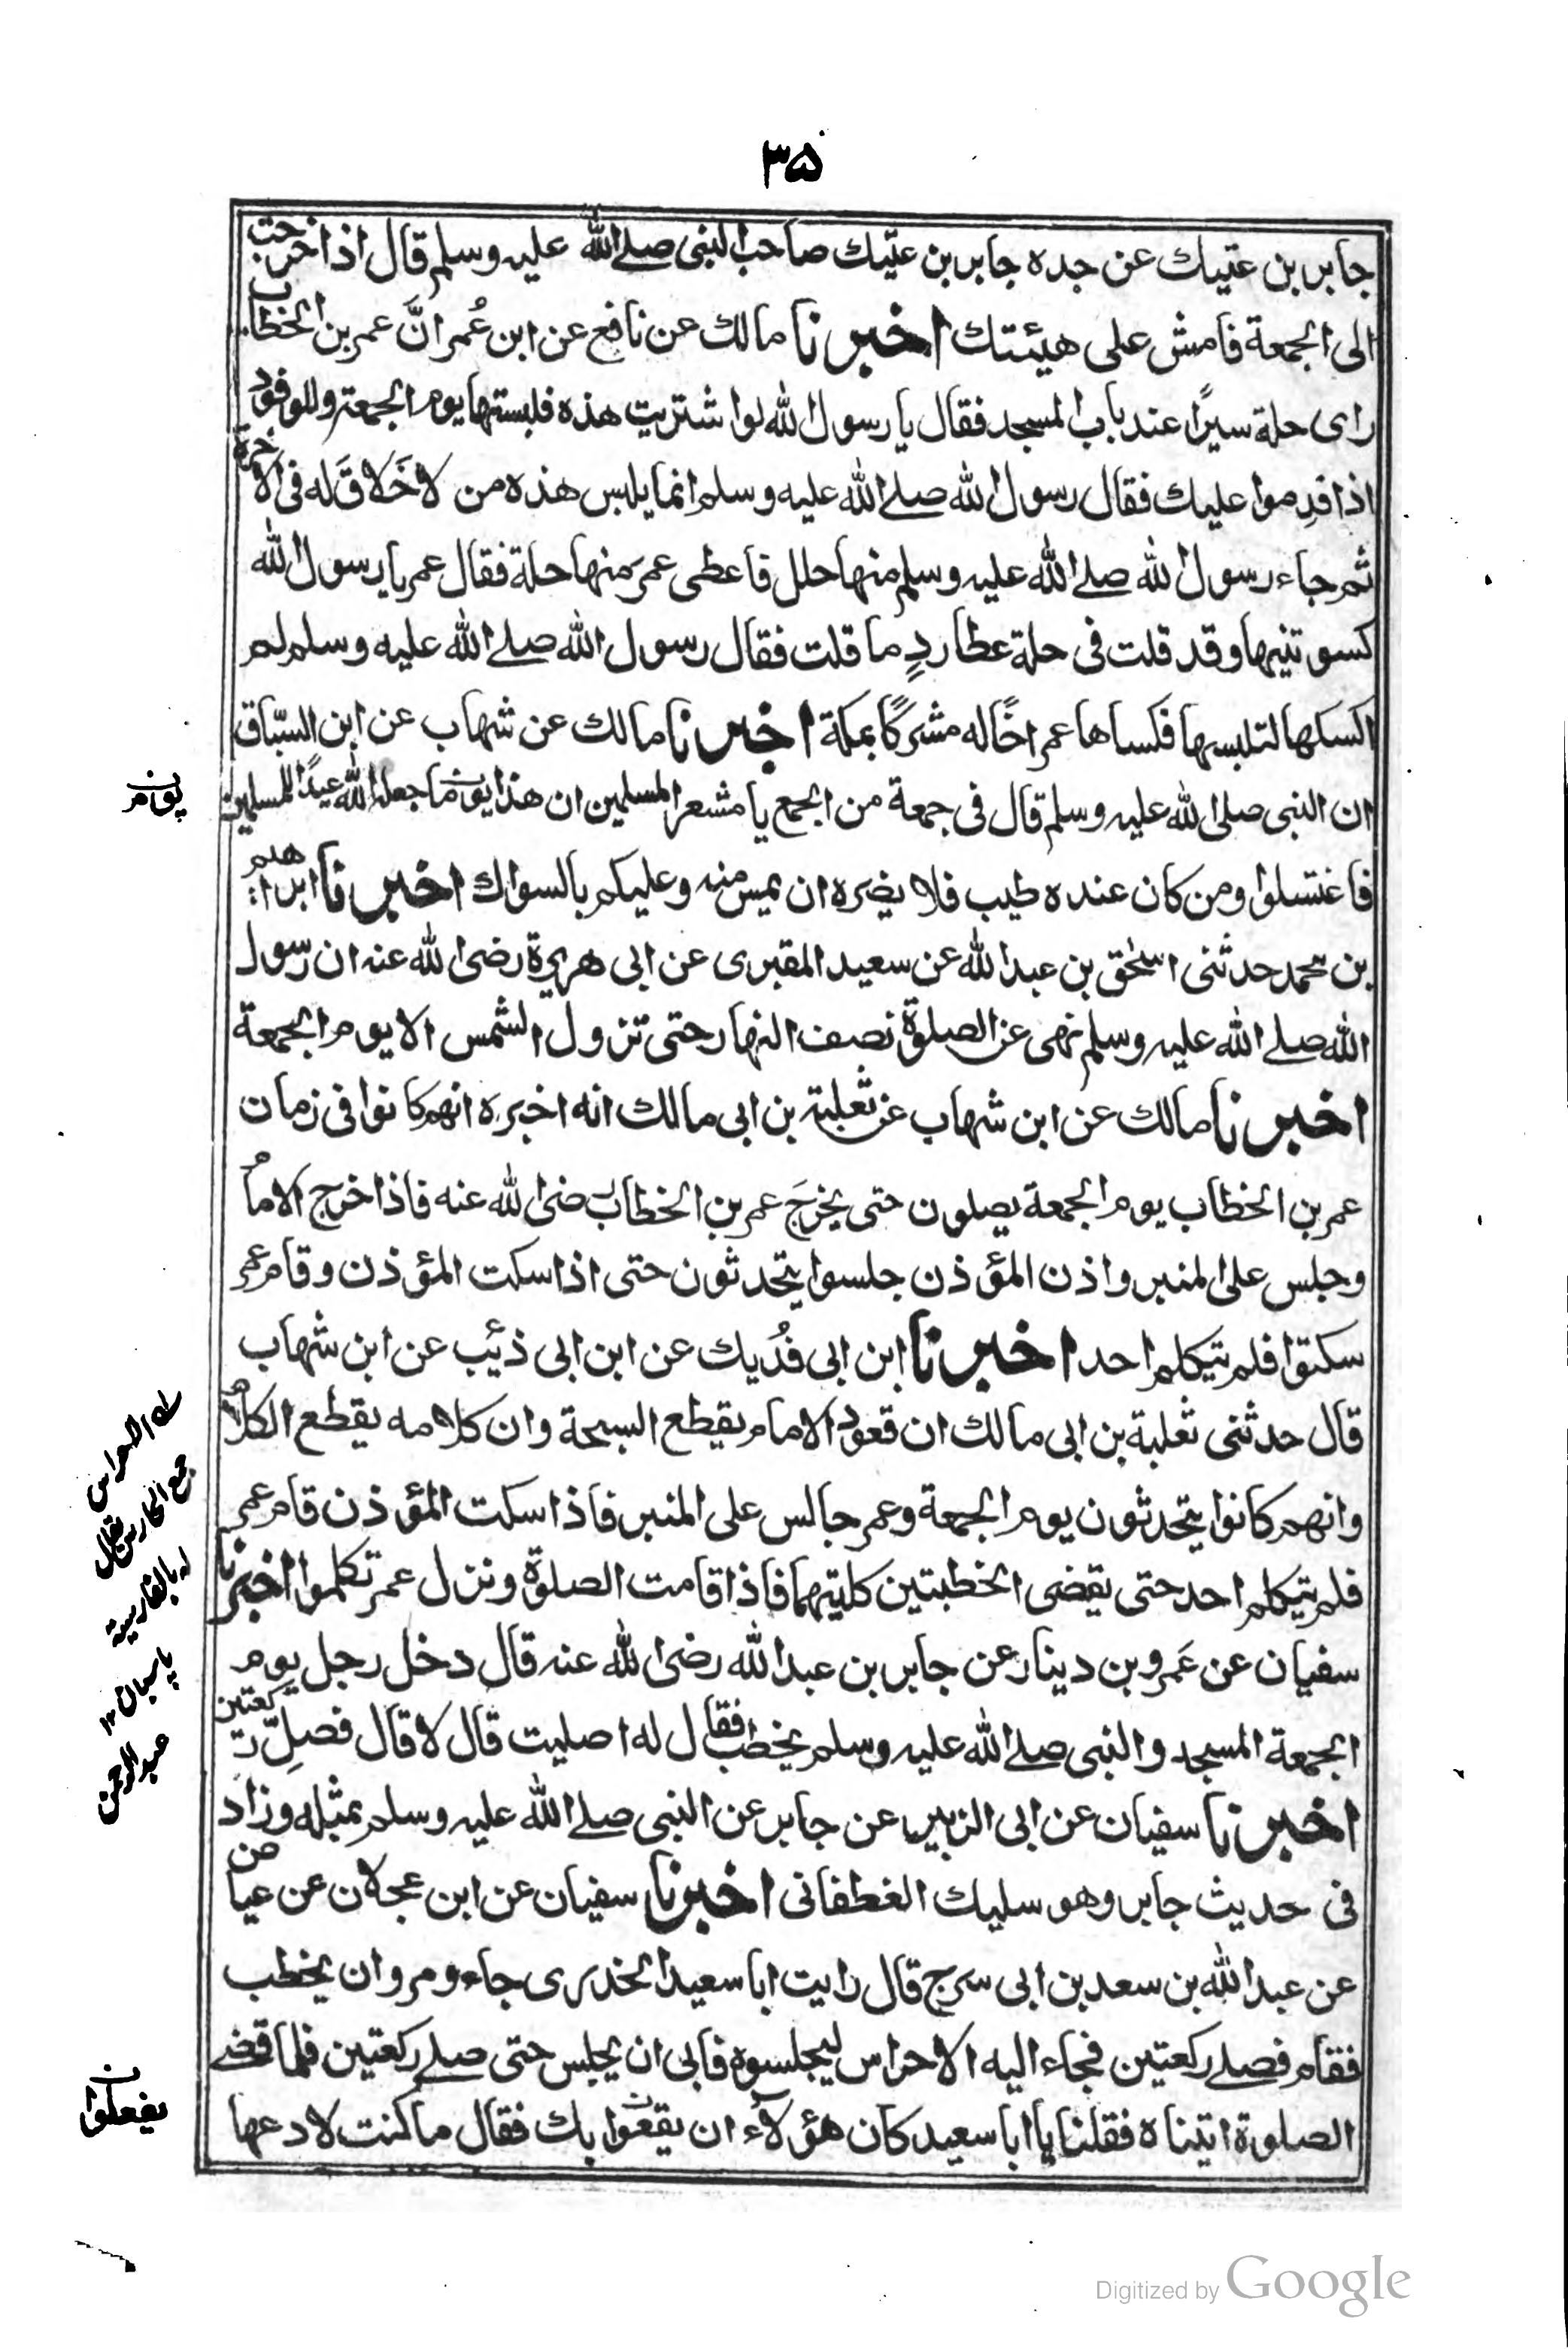 ۳۵
جابر بن عتيك عن جده جابر بن عتيك صاحب النبى صلے الله عليه وسلم قال اذا خرجت
الى الجمعة فامش على هيئتك اخبرنا مالك عن نافع عن ابن عُمر انَّ عمر بن الخطاب
راى حلة سيرًا عند باب المسجد فقال يا رسول الله لو اشتريت هذه فلبستها يوم الجمعة وللوفود
اذا قدِموا عليك فقال رسول الله صلے الله عليه وسلم انما يلبس هذه من لا خَلاقَ له فى الاخرة
ثم جاء رسول الله صلے الله عليه وسلم منها حلل فاعطى عمرَ منها حلة فقال عمر يا رسول الله
كسوتنيها وقد قلت فى حلة عطاردٍ ما قلت فقال رسول الله صلے الله عليه وسلم لم
اكسكها لتلبسها فكساها عمر اخًا له مشركًا بمكة اخبرنا مالك عن شهاب عن ابن السبّاق
ان النبى صلى الله عليه وسلم قال فى جمعة من الجمع يا مشعر المسلمين ان هذا يوما جعله الله عيدًا للمسلمين
يوم ن
فاغتسلوا ومن كان عنده طيب فلا يضره ان يمس منه وعليكم بالسواك اخبرنا ابراهيم
بن محمد حدثنى اسحٰق بن عبد الله عن سعيد المقبرى عن ابى هريرة رضى الله عنه ان رسول
الله صلے الله عليه وسلم نهى عن الصلوة نصف النهار حتى تزول الشمس الا يوم الجمعة
اخبرنا مالك عن ابن شهاب عن ثعلبة بن ابى مالك انه اخبره انهم كانوا فى زمان
عمر بن الخطاب يوم الجمعة يصلون حتى يخرجَ عمر بن الخطاب رضى الله عنه فاذا خرج الامامُ
وجلس على المنبر واذن المؤذن جلسوا يتحدثون حتى اذا سكت المؤذن وقام عمر
سكتوا فلم يتكلم احد اخبرنا ابن ابى فُدَيك عن ابن ابى ذئب عن ابن شهاب
قال حدثنى ثعلبة بن ابى مالك ان قعود الامام يقطع السبحة وان كلامه يقطع الكلامُ
وانهم كانوا يتحدثون يوم الجمعة وعمر جالس على المنبر فاذا سكت المؤذن قام عمر
فلم يتكلم احد حتى يقضى الخطبتين كليتهما فاذا قامت الصلوة ونزل عمر تكلموا اخبرنا
سفيان عن عَمرو بن دينار عن جابر بن عبد الله رضى الله عنه قال دخل رجل يوم
الجمعة المسجد والنبى صلے الله عليه وسلم يخطب فقال له اصليت قال لا قال فصلِّ ركعتين
اخبرنا سفيان عن ابى الزبير عن جابر عن النبى صلے الله عليه وسلم بمثله وزاد
فى حديث جابر وهو سليك الغطفانى اخبرنا سفيان عن ابن عجلان عن عياض
عن عبد الله بن سعد بن ابى سرج قال رايت ابا سعيد الخدرى جاء ومروان يخطب
فقام فصلے ركعتين فجاء اليه الاحراس ليجلسوه فابى ان يجلس حتى صلے ركعتين فلما قضے
الصلوة اتيناه فقلنا يا ابا سعيد كان هؤلاء ان يقعوا بك فقال ما كنت لادعها
يفعلوا ن
له الاحراس
جمع الحارس يقال
له بالفارسية
پاسبان ١٢
عبد الرحمن
Digitized by Google